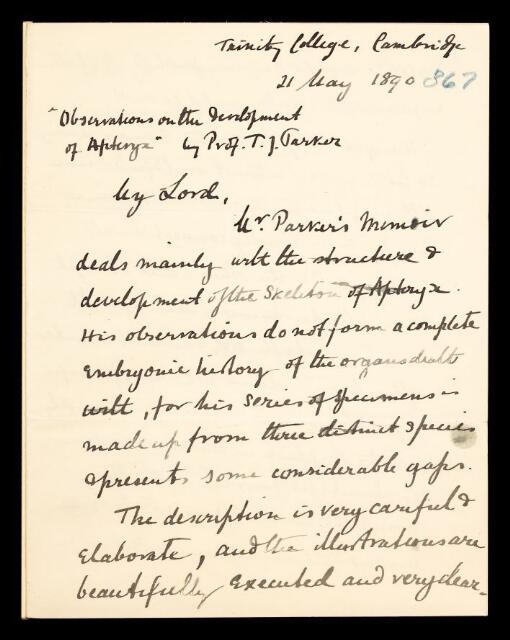 Trinity College, Cambridge
21 May 1890 367
"Observations on the development
of Apteryx" by Prof. T. J. Parker
My Lord,
Mr. Parker's Memoir
deals mainly with the structure &
development of the skeleton of Apteryx.
His observations do not form a complete
Embryonic history of the organs dealt
with, for his series of specimens is
made up from three distinct species
& presents some considerable gaps.
The description is very careful &
elaborate, and the illustrations are
beautifully executed and very clear.